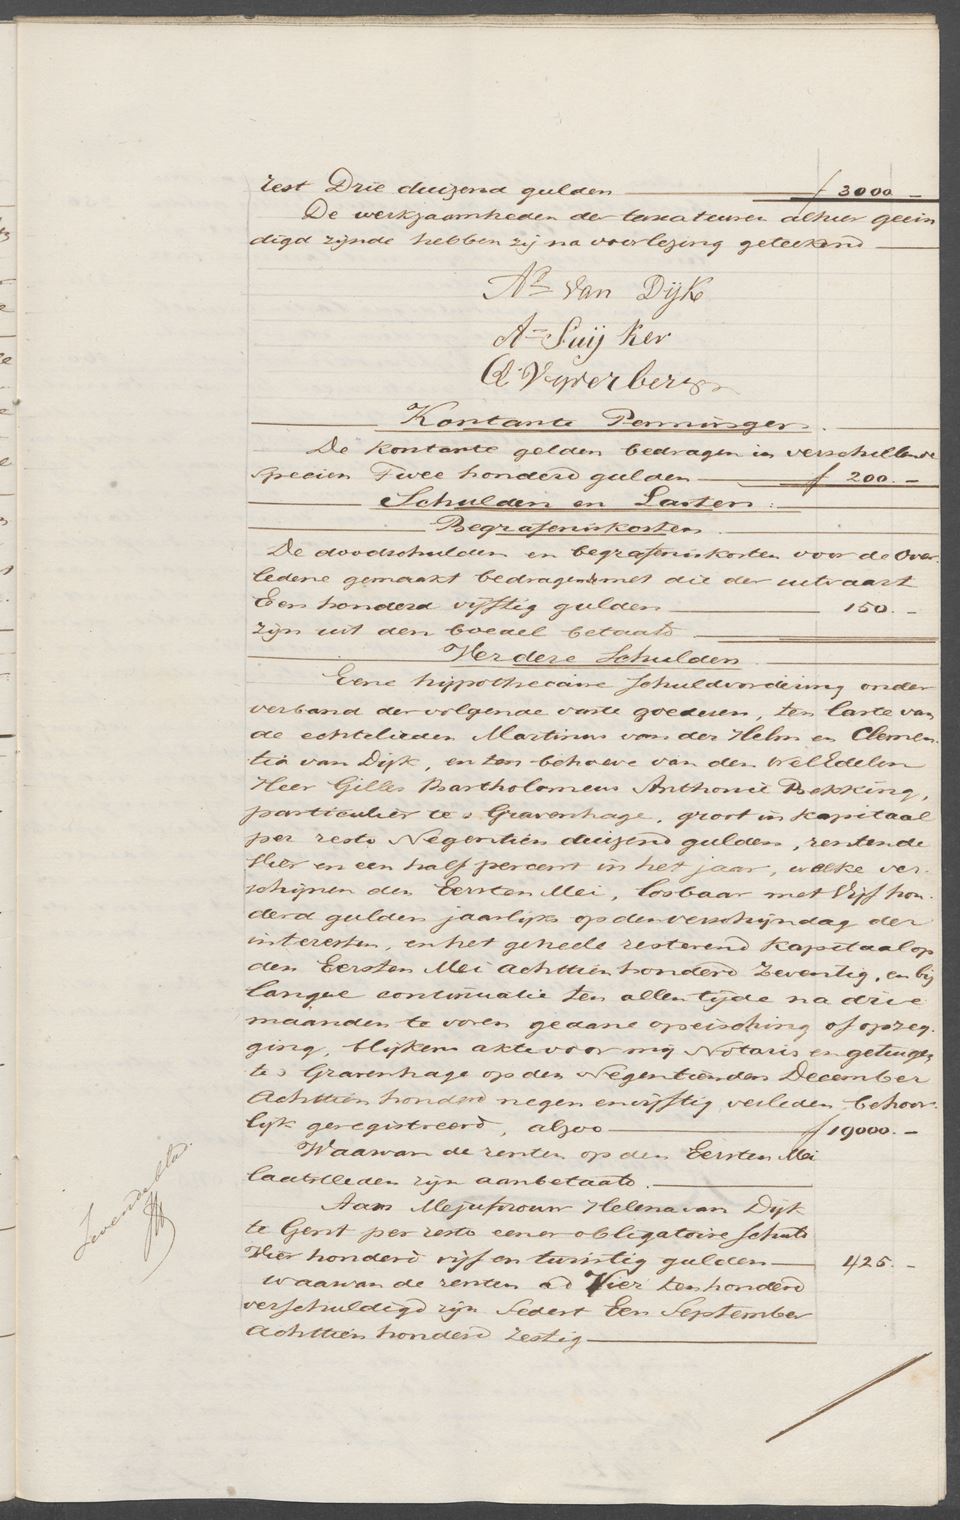 rest Drie duizend gulden ƒ 3000 –
De werkzaamheden der taxateuren alhier geëin
digd zijnde hebben zij na voorlezing geteekend
Ad van Dijk
A Suijker
Kontante Penningen.
De kontante gelden bedragen in verschillende
speciën Twee honderd gulden ƒ 200. –
Schulden en Lasten:
Begrafeniskosten.
De doodschulden en begrafeniskosten voor de Over-
ledene gemaakt bedragende met die der uitvaart
Een honderd vijftig gulden 150. –
zijn uit den boedel betaald
Verdere Schulden
Eene hijpothecaire schuldvordering onder
verband der volgende vaste goederen, ten laste van
de echtelieden Martinus van der Helm en Clemen-
tia van Dijk, en ten behoeve van den WelEdelen
Heer Gilles Bartholomeus Anthonie Bekking,
particulier te s Gravenhage, groot in kapitaal
per resto Negentien duizend gulden, rentende
Vier en een half percent in het jaar, welke ver-
schijnen den Eersten Mei, losbaar met Vijf hon-
derd gulden jaarlijks op den verschijndag der
interesten, en het geheele resterend kapitaal op
den Eersten Mei Achttien honderd Zeventig, en bij
langue continuatie ten allen tijde na drie
maanden te voren gedane opeisching of opzeg-
ging, blijkens akte voor mij Notaris en getuigen
te s Gravenhage op den Negentienden December
Achttien honderd negen en vijftig verleden, behoor-
lijk geregistreerd, alzoo ƒ 19000. –
Waarvan de renten op den Eersten Mei
laatstleden zijn aanbetaald.
Aan Mejufvrouw Helena van Dijk
te Gent per resto eener obligatoire schuld
Vier honderd vijf en twintig gulden 425. –
waarvan de renten ad Vier ten honderd
verschuldigd zijn sedert Een September
Achttien honderd zestig
Zevende blad.